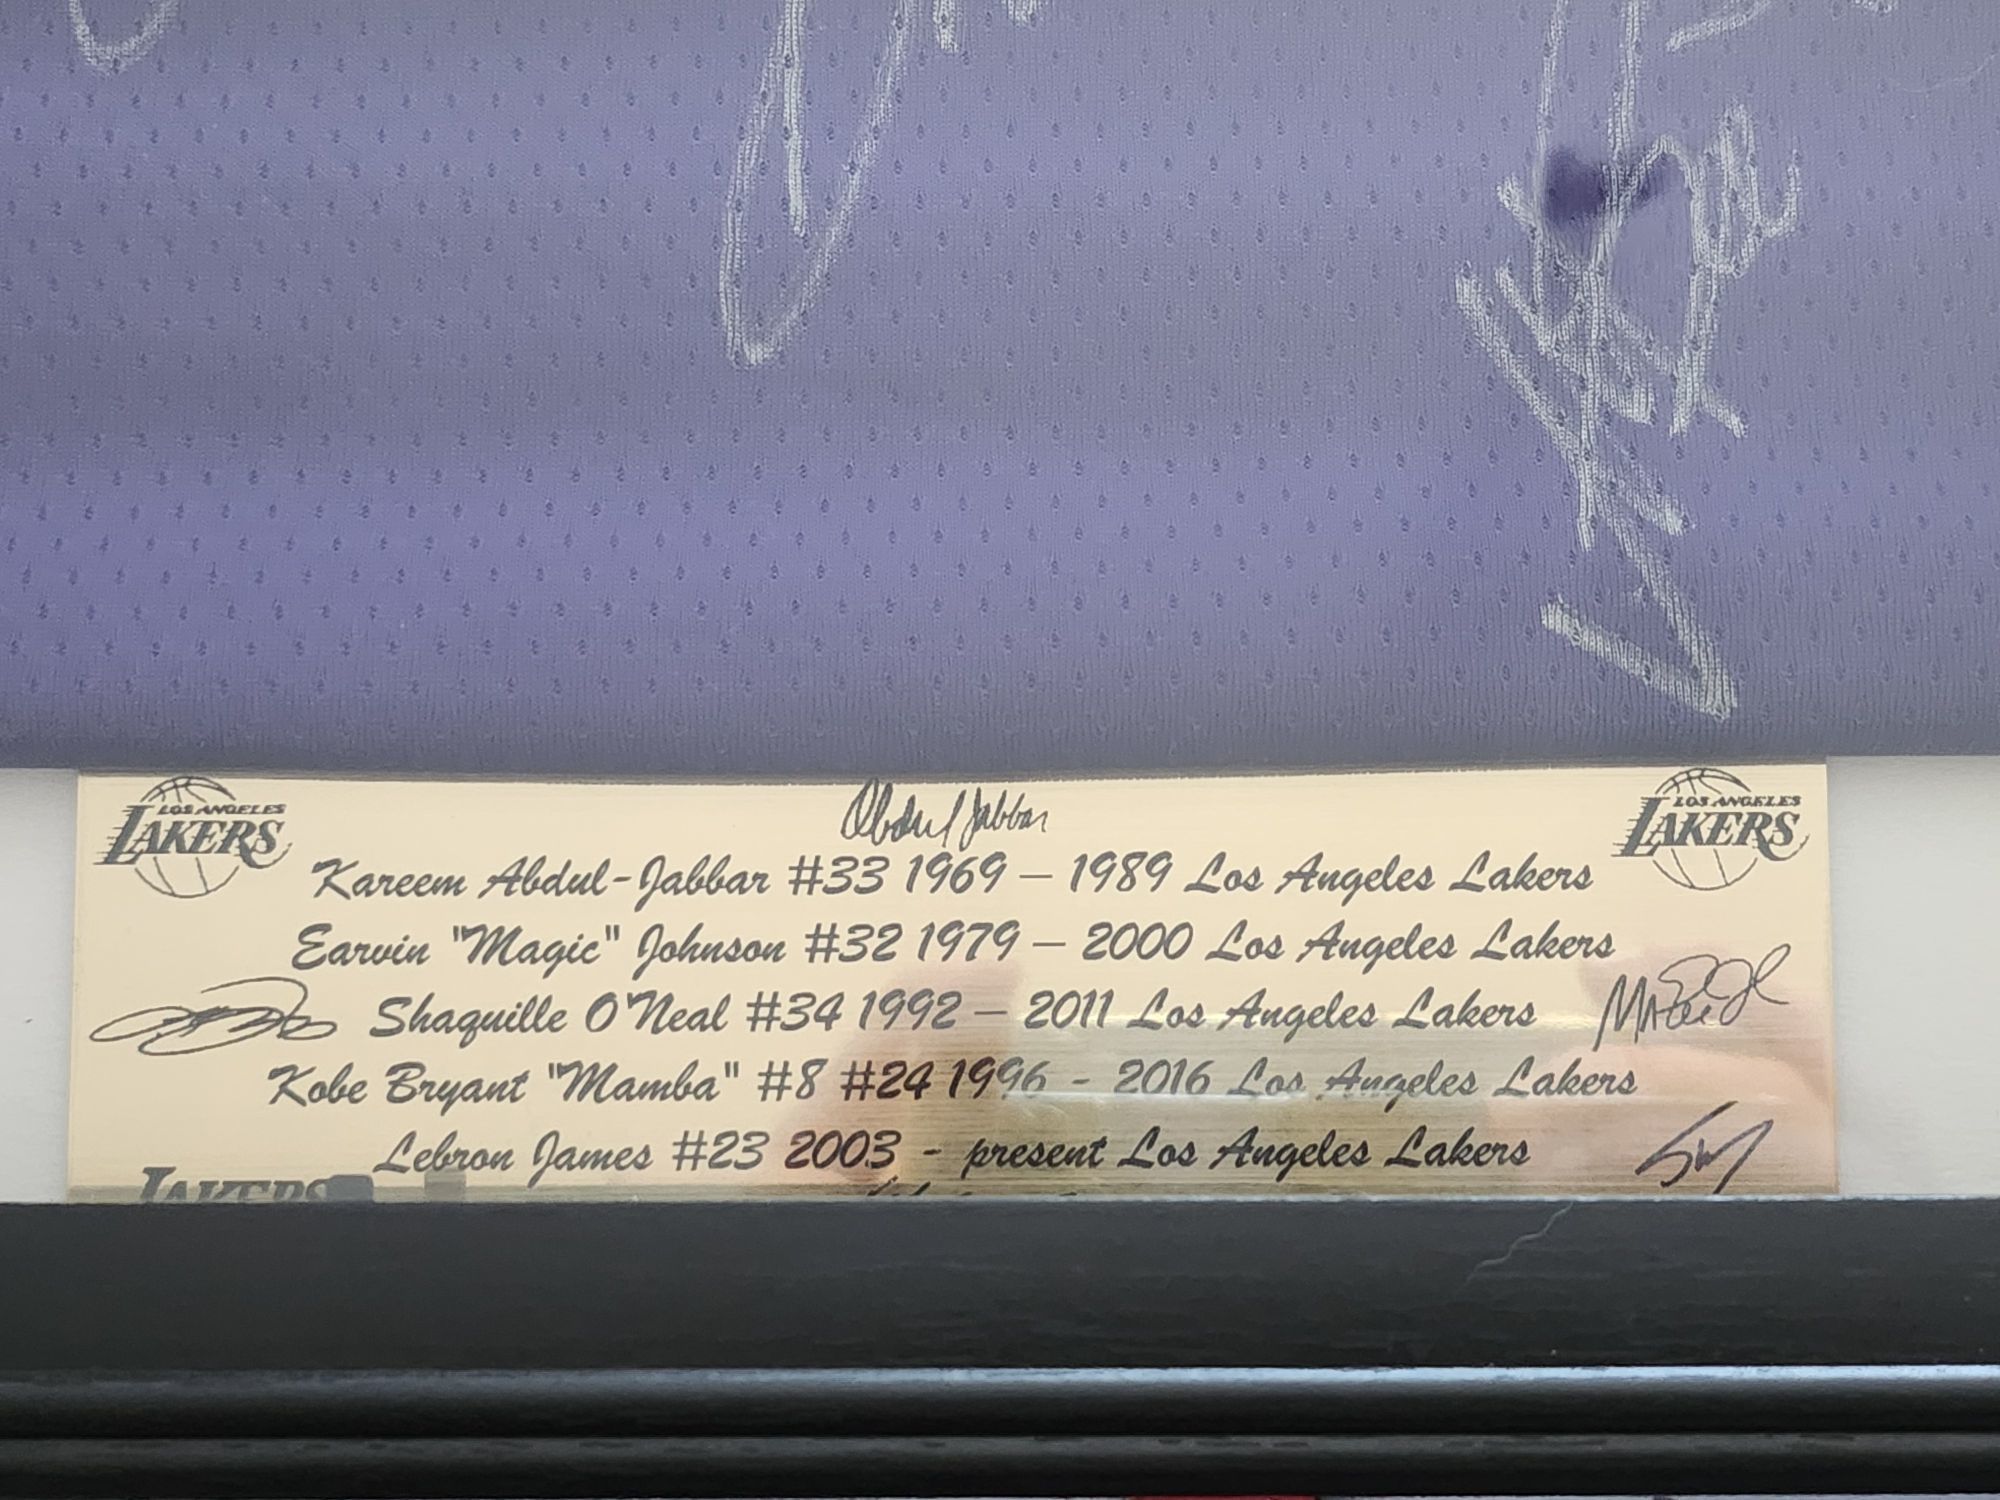 LOS ANGELES
LAKERS
LOS ANGELES
LAKERS
Abdul Jabbar
Kareem Abdul-Jabbar #33 1969 – 1989 Los Angeles Lakers
Earvin "Magic" Johnson #32 1979 – 2000 Los Angeles Lakers
Shaquille O'Neal #34 1992 – 2011 Los Angeles Lakers
Kobe Bryant "Mamba" #8 #24 1996 - 2016 Los Angeles Lakers
Lebron James #23 2003 - present Los Angeles Lakers
LAKERS